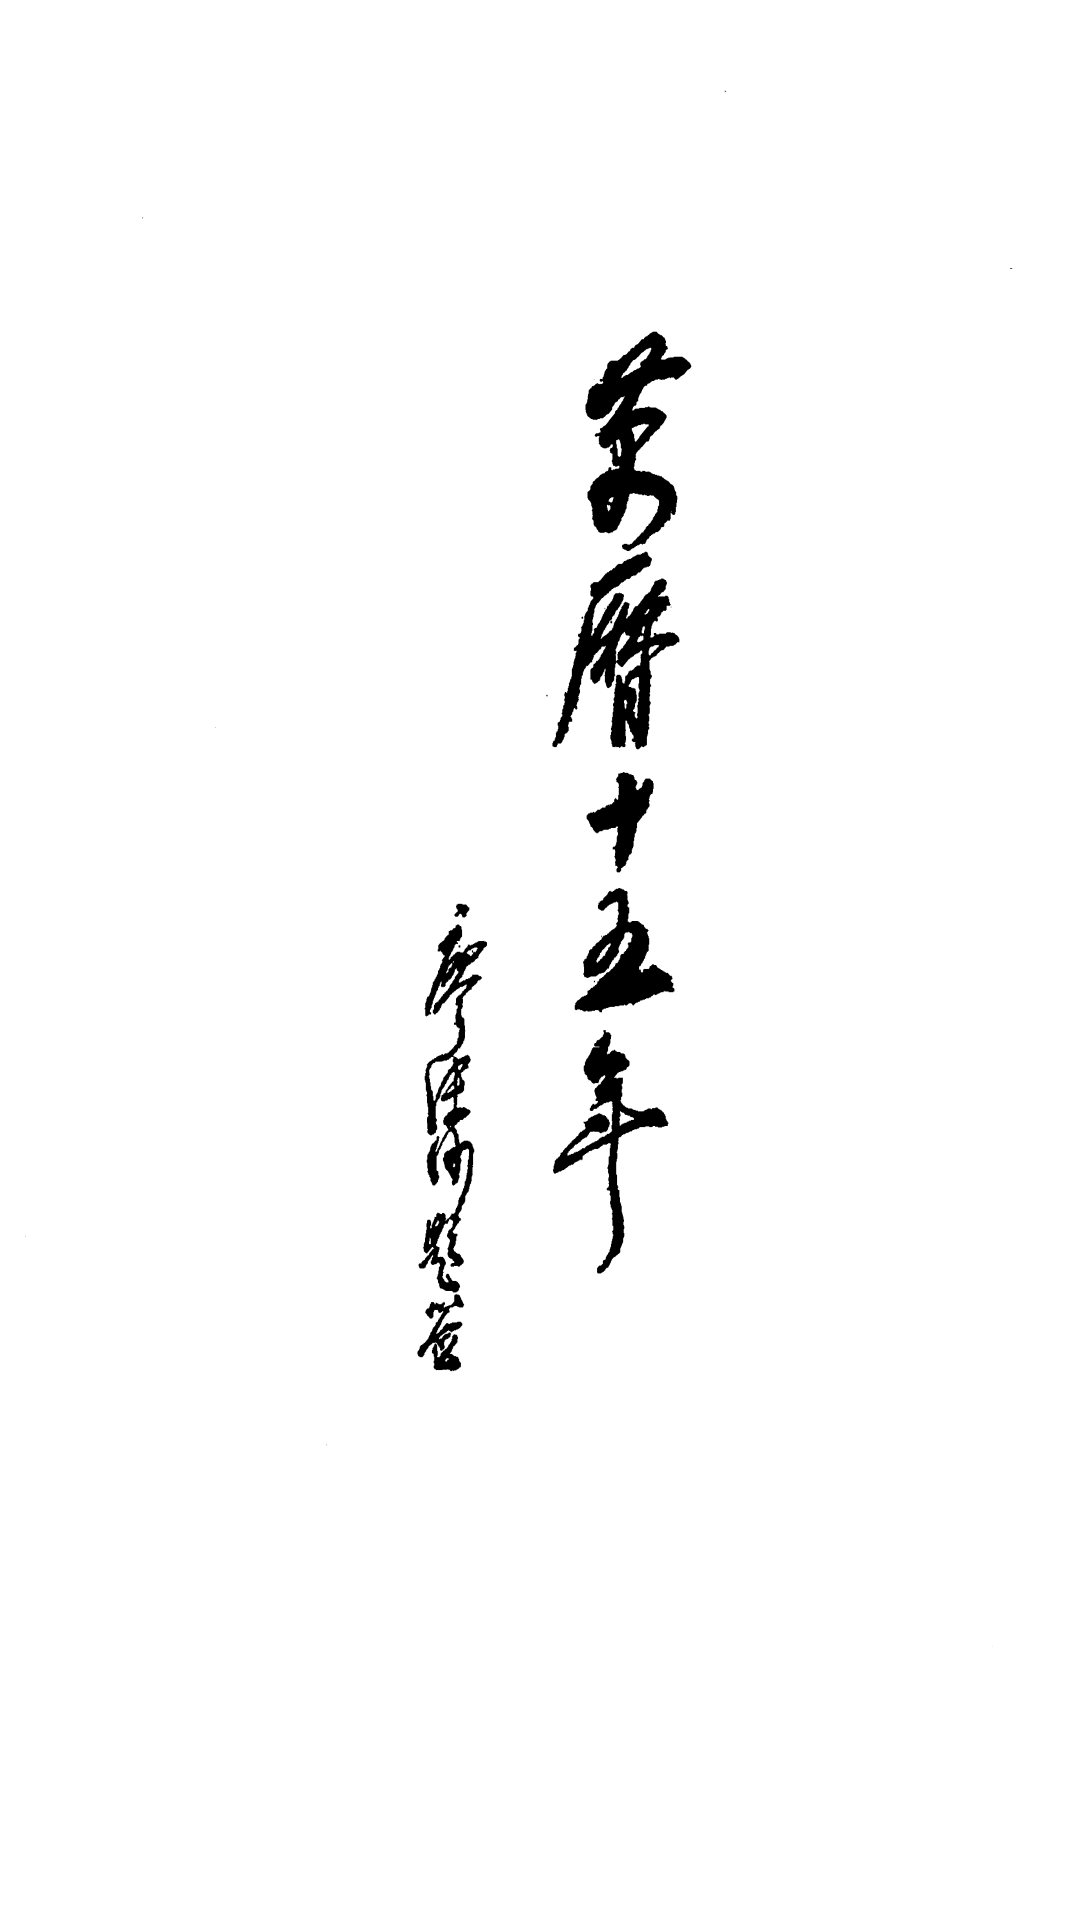 萬曆十五年
廖沫沙題簽